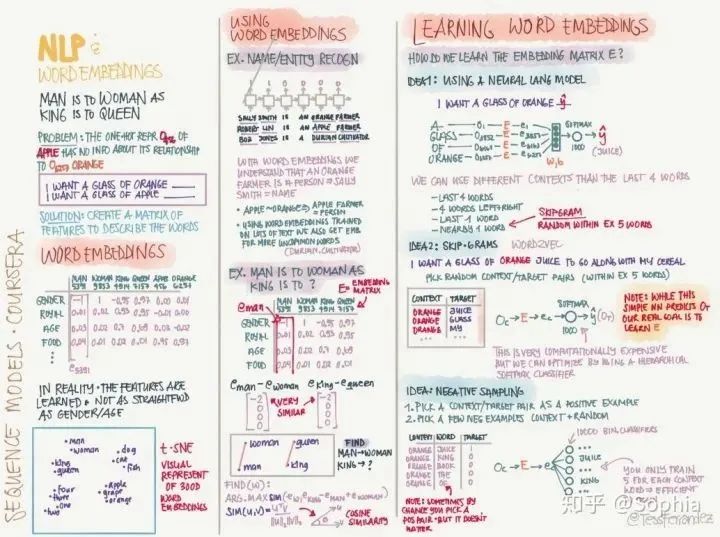 SEQUENCE MODELS · COURSERA
NLP &
WORD EMBEDDINGS
MAN IS TO WOMAN AS
KING IS TO QUEEN
PROBLEM: THE ONE-HOT REPR OF
APPLE HAS NO INFO ABOUT ITS RELATIONSHIP
TO ORANGE
I WANT A GLASS OF ORANGE ____
I WANT A GLASS OF APPLE ____
SOLUTION: CREATE A MATRIX OF
FEATURES TO DESCRIBE THE WORDS
WORD EMBEDDINGS
MAN WOMAN KING QUEEN APPLE ORANGE
5391 9853 4914 7157 456 6257
GENDER -1 1 -0.95 0.97 0.00 0.01
ROYAL 0.01 0.02 0.93 0.95 -0.01 0.00
AGE 0.03 0.02
FOOD
e5391
IN REALITY · THE FEATURES ARE
LEARNED & NOT AS STRAIGHTFWD
AS GENDER/AGE
man
woman
dog
cat
fish
king
queen
four
three
one
two
apple
grape
orange
t-SNE
VISUAL
REPRESENT
OF 300D
WORD
EMBEDDINGS
USING
WORD EMBEDDINGS
EX. NAME/ENTITY RECOGN
1 1 0 0 0 0
SALLY SMITH IS AN ORANGE FARMER
ROBERT LIN IS AN APPLE FARMER
BOB JONES IS A DURIAN CULTIVATOR
WITH WORD EMBEDDINGS WE
UNDERSTAND THAT AN ORANGE
FARMER IS A PERSON ⇒ SALLY
SMITH = NAME
• APPLE ~ ORANGE ⇒ APPLE FARMER
= PERSON
• USING WORD EMBEDDINGS TRAINED
ON LOTS OF TEXT WE ALSO GET EMB
FOR MORE UNCOMMON WORDS
(DURIAN, CULTIVATOR)
EX. MAN IS TO WOMAN AS
KING IS TO ?
E = EMBEDDING
MATRIX
eman
MAN WOMAN KING QUEEN
5391 9853 4914 7157
GENDER -1 1 -0.95 0.97
ROYAL 0.01 0.02 0.93 0.95
AGE 0.03 0.02
FOOD
eman - ewoman eking - equeen
[-2 0 0 0] VERY SIMILAR [-2 0 0 0]
woman queen
man king
FIND
MAN → WOMAN
KING → ?
FIND(W):
ARG. MAX SIM(ew, eking - eman + ewoman)
SIM(u,v) = uᵀv / ||u||₂||v||₂
COSINE
SIMILARITY
LEARNING WORD EMBEDDINGS
HOW DO WE LEARN THE EMBEDDING MATRIX E?
IDEA 1: USING A NEURAL LANG MODEL
I WANT A GLASS OF ORANGE ŷ
A → O1 → E → e1
GLASS → O3852 → E → e3852
OF → E
ORANGE → O6257 → E → e6257
SOFTMAX
ŷ
(JUICE)
W, b
WE CAN USE DIFFERENT CONTEXTS THAN THE LAST 4 WORDS
- LAST 4 WORDS
- 4 WORDS LEFT/RIGHT
- LAST 1 WORD
- NEARBY 1 WORD
SKIPGRAM
RANDOM WITHIN EX 5 WORDS
IDEA 2: SKIP-GRAMS WORD2VEC
I WANT A GLASS OF ORANGE JUICE TO GO ALONG WITH MY CEREAL
PICK RANDOM CONTEXT/TARGET PAIRS (WITHIN EX 5 WORDS)
CONTEXT TARGET
ORANGE JUICE
ORANGE GLASS
ORANGE MY
Oc → E → ec → SOFTMAX → ŷ
NOTE: WHILE THIS
SIMPLE NN PREDICTS
OUR REAL GOAL IS TO
LEARN E
THIS IS VERY COMPUTATIONALLY EXPENSIVE
BUT WE CAN OPTIMIZE BY USING A HIERARCHICAL
SOFTMAX CLASSIFIER
IDEA: NEGATIVE SAMPLING
1. PICK A CONTEXT/TARGET PAIR AS A POSITIVE EXAMPLE
2. PICK A FEW NEG EXAMPLES CONTEXT + RANDOM
CONTEXT WORD TARGET
ORANGE JUICE 1
ORANGE KING 0
ORANGE BOOK 0
ORANGE THE 0
ORANGE OF 0
NOTE: SOMETIMES BY
CHANCE YOU PICK A
POS PAIR - BUT IT DOESN'T
MATTER
10000 BIN. CLASSIFIERS
Oc → E → ec
JUICE
KING
YOU ONLY TRAIN
5 FOR EACH CONTEXT
WORD ⇒ EFFICIENT
知乎 @Sophia
@TessFerrandez